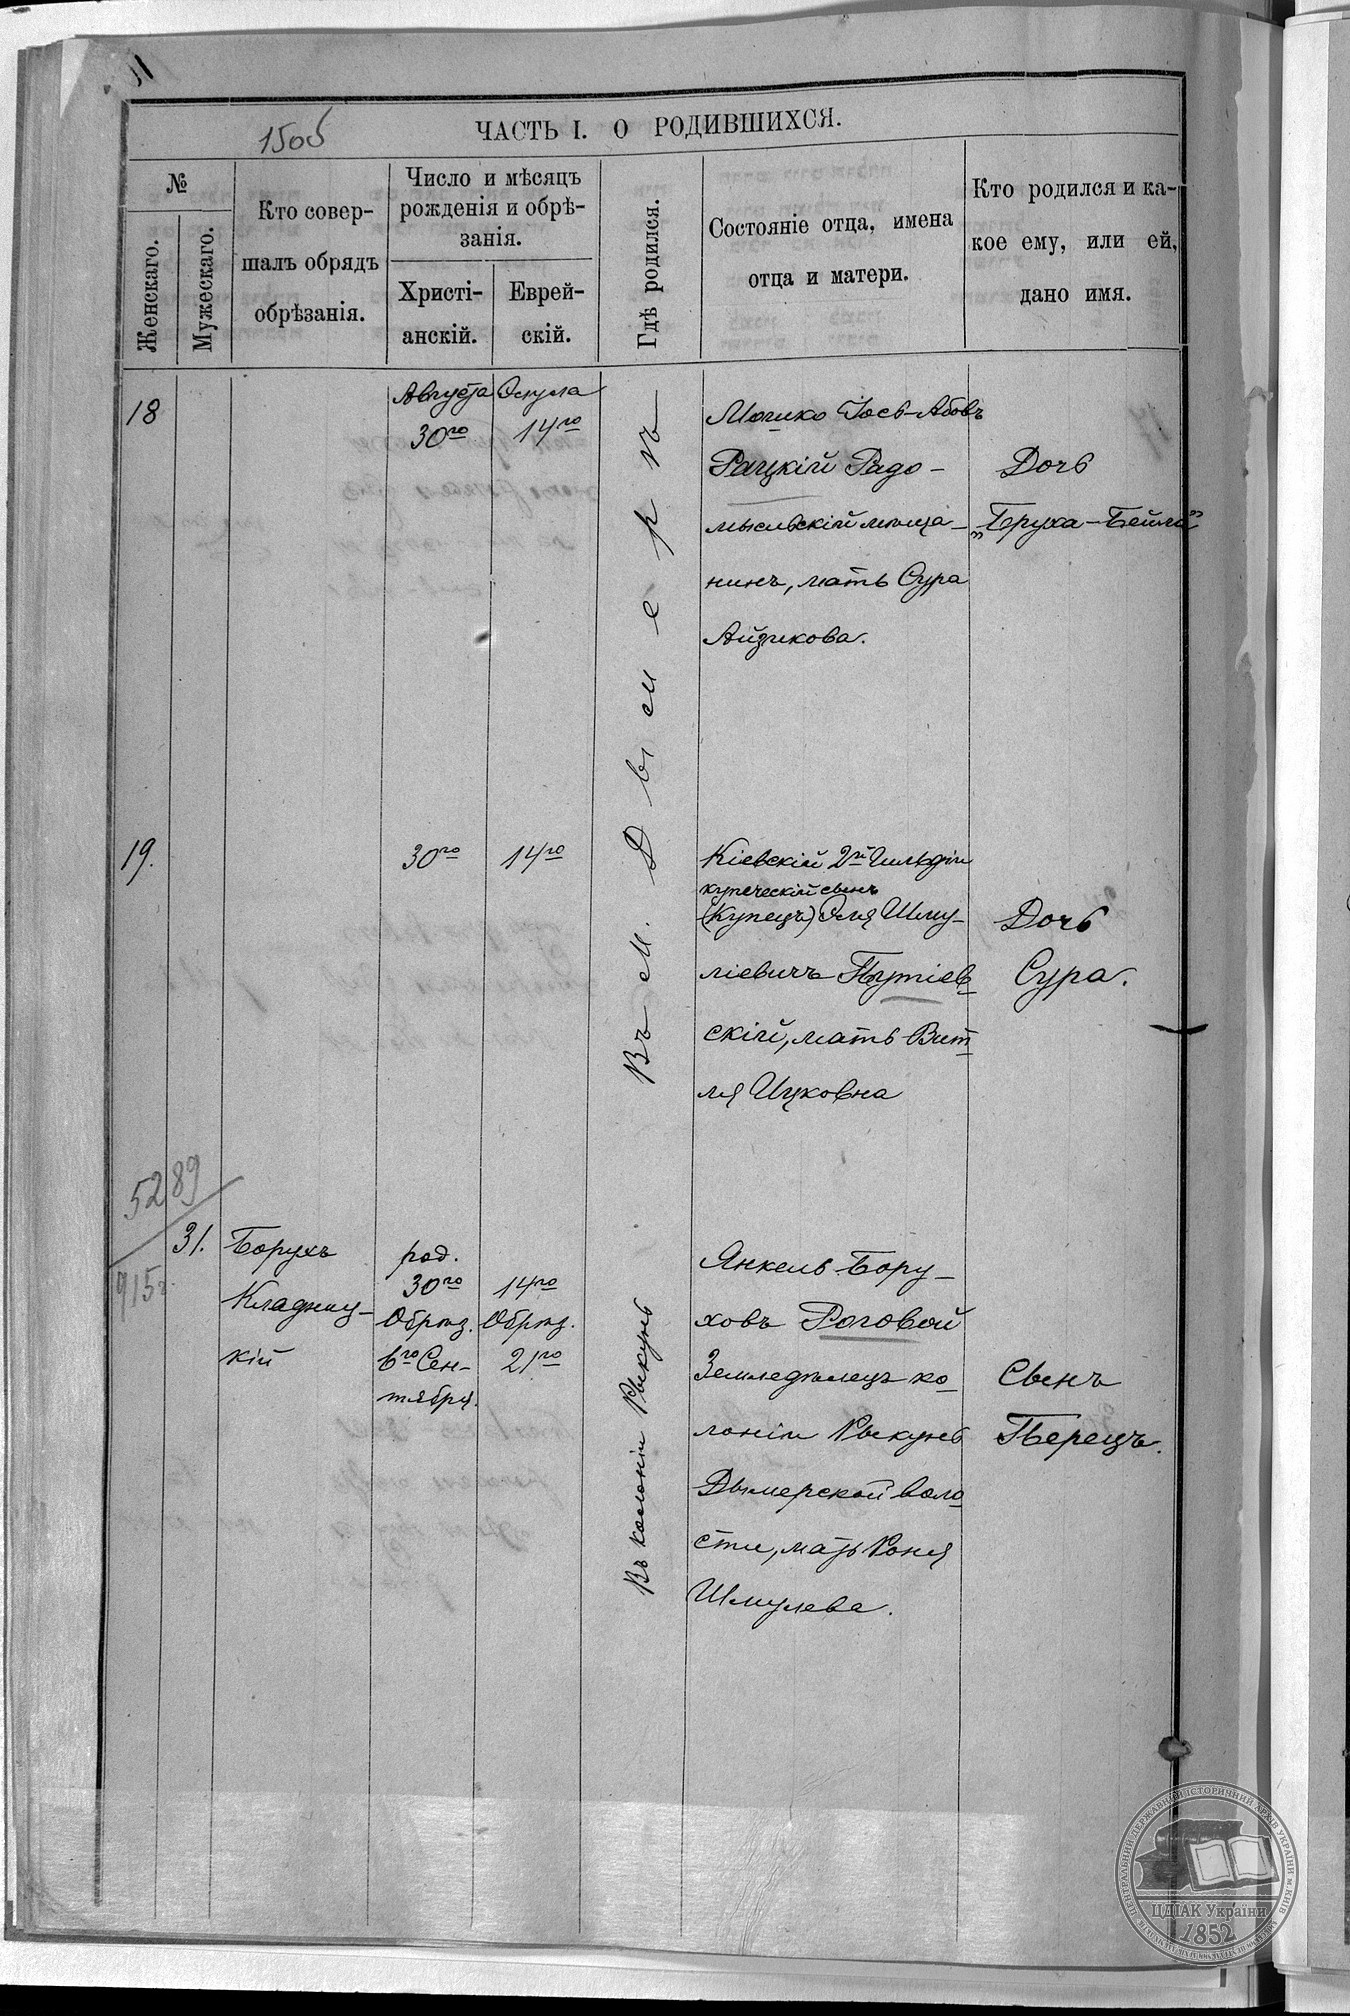 1505
ЧАСТЬ I. О РОДИВШИХСЯ.
№
Женскаго.
Мужескаго.
Кто совер-
шалъ обрядъ
обрѣзанія.
Число и мѣсяцъ
рожденія и обрѣ-
занія.
Христі-
анскій.
Еврей-
скій.
Гдѣ родился.
Состояніе отца, имена
отца и матери.
Кто родился и ка-
кое ему, или ей,
дано имя.
18
Августа
30го
Элула
14го
Въ м. Дымерѣ
Мошко Іось-Абовъ
Рацкій Радо-
мысльскій мѣща-
нинъ, мать Сура
Айзикова.
Дочь
„Бруха-Бейля"
19.
30го
14го
Кіевскій 2й Гильдіи
купеческій сынъ
(Купецъ) Эля Шму-
ліевичъ Путіев-
скій, мать Вит-
ля Ицковна
Дочь
Сура.
5289
915
31.
Борухъ
Кладниц-
кій
род.
30го
Обрѣз.
6го Сен-
тября.
14го
Обрѣз.
21го
Въ колоніи Рыкунь
Янкель Бору-
ховъ Роговой
Земледѣлецъ ко-
лоніи Рыкунь
Дымерской воло-
сти, мать Роня
Шмулева.
Сынъ
Перецъ.
ЦЕНТРАЛЬНИЙ ДЕРЖАВНИЙ ІСТОРИЧНИЙ АРХІВ УКРАЇНИ м.КИЇВ
ЦДІАК України
1852